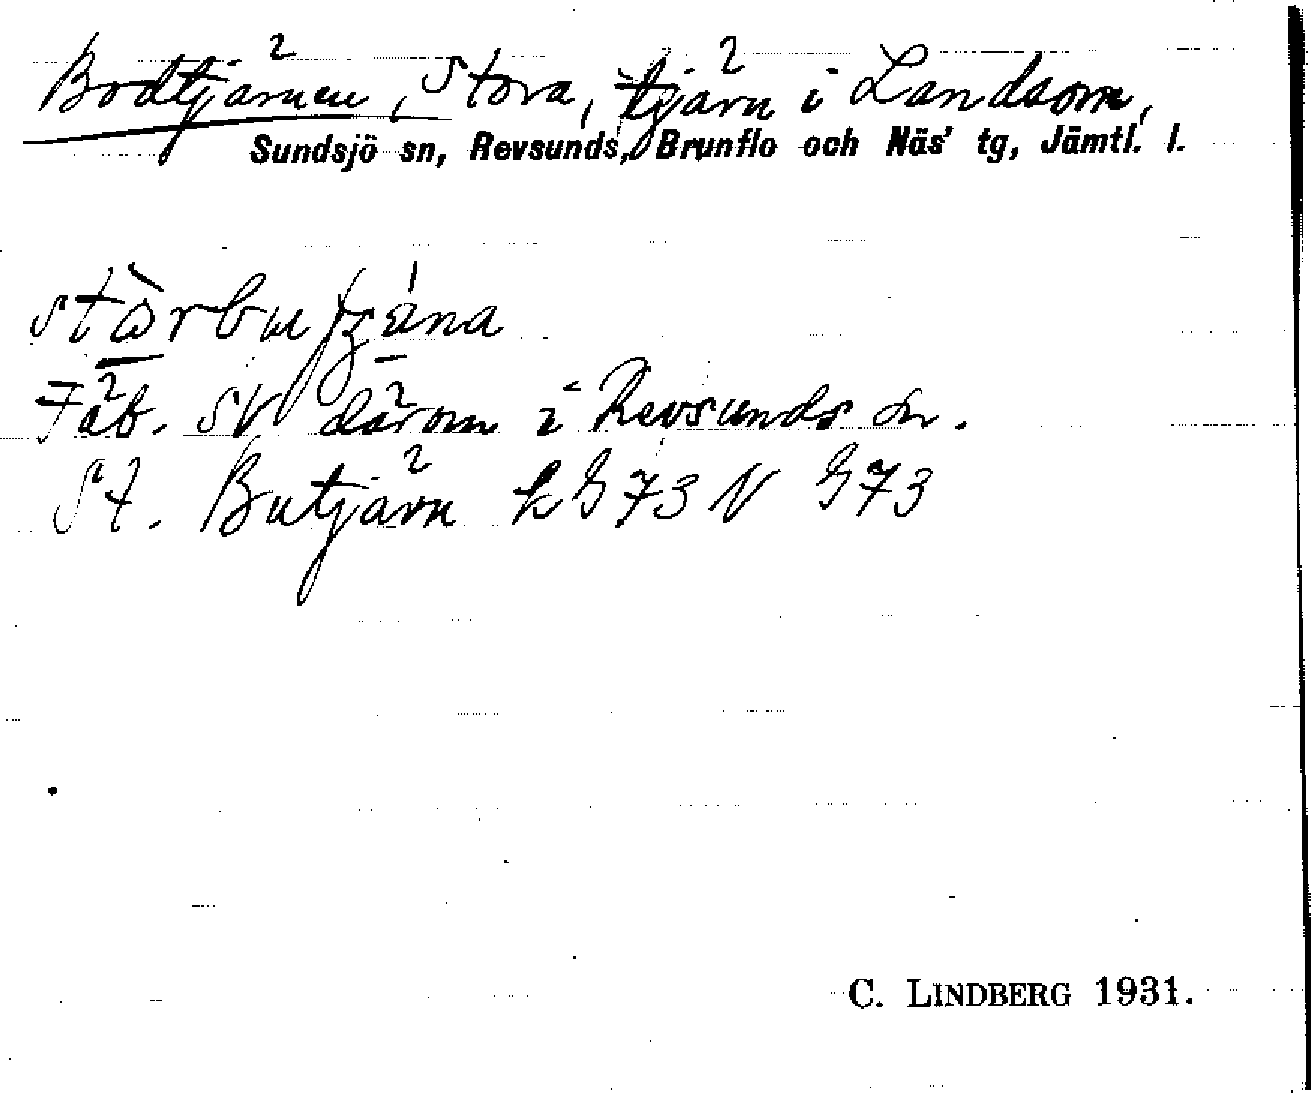 Bodtjärnen, Stora, tjärn i Landsom,
Sundsjö sn, Revsunds, Brunflo och Näs' tg, Jämtl. l.
Fäb. SV därom i Revsunds sn.
St. Butjärn k G 73 V G 73
C. LINDBERG 1931.